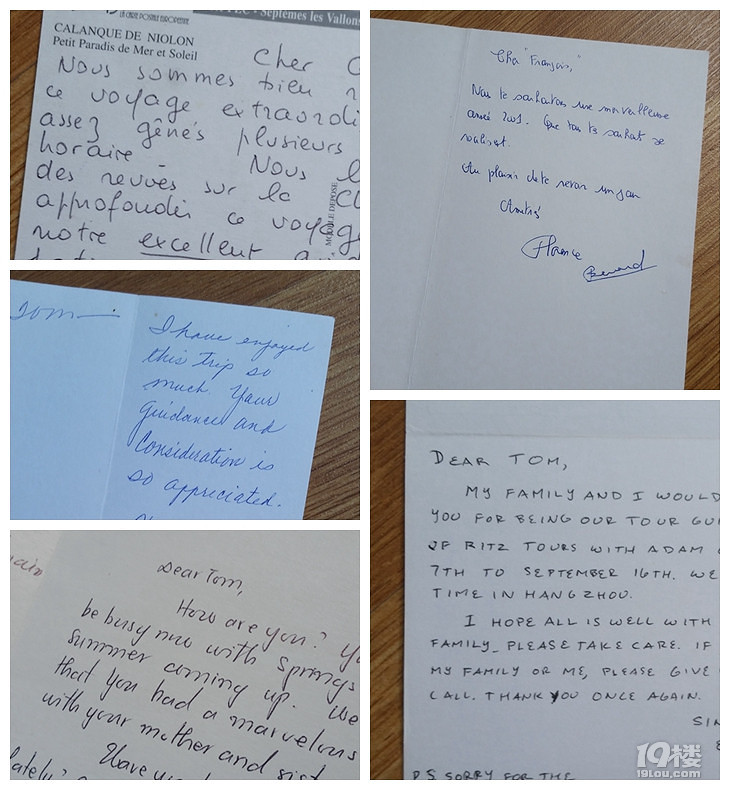 LA CARTE POSTALE EUROPEENNE
- Septèmes les Vallons
CALANQUE DE NIOLON
Petit Paradis de Mer et Soleil
Cher
Nous sommes bien
ce voyage
assez gênés plusieurs
horaire Nous
des revues sur la
approfondir ce voyage
notre excellent
MODELE DEPOSE
Cher François,
Nous te souhaitons une merveilleuse
année 2001. Que tous tes souhaits se
réalisent.
Au plaisir de te revoir un jour
Amitiés
Florence
Bernard
Tom
I have enjoyed
this trip so
much. Your
Guidance and
Consideration is
so appreciated.
Dear Tom,
How are you?
be busy now with Springs
summer coming up. We
that you had a marvelous
with your mother and
Have you
lately?
DEAR TOM,
MY FAMILY AND I WOULD
YOU FOR BEING OUR TOUR
OF RITZ TOURS WITH ADAM
7TH TO SEPTEMBER 16TH. WE
TIME IN HANGZHOU.
I HOPE ALL IS WELL WITH
FAMILY. PLEASE TAKE CARE. IF
MY FAMILY OR ME, PLEASE GIVE
CALL. THANK YOU ONCE AGAIN.
SIN
P.S SORRY FOR THE
19楼
19lou.com